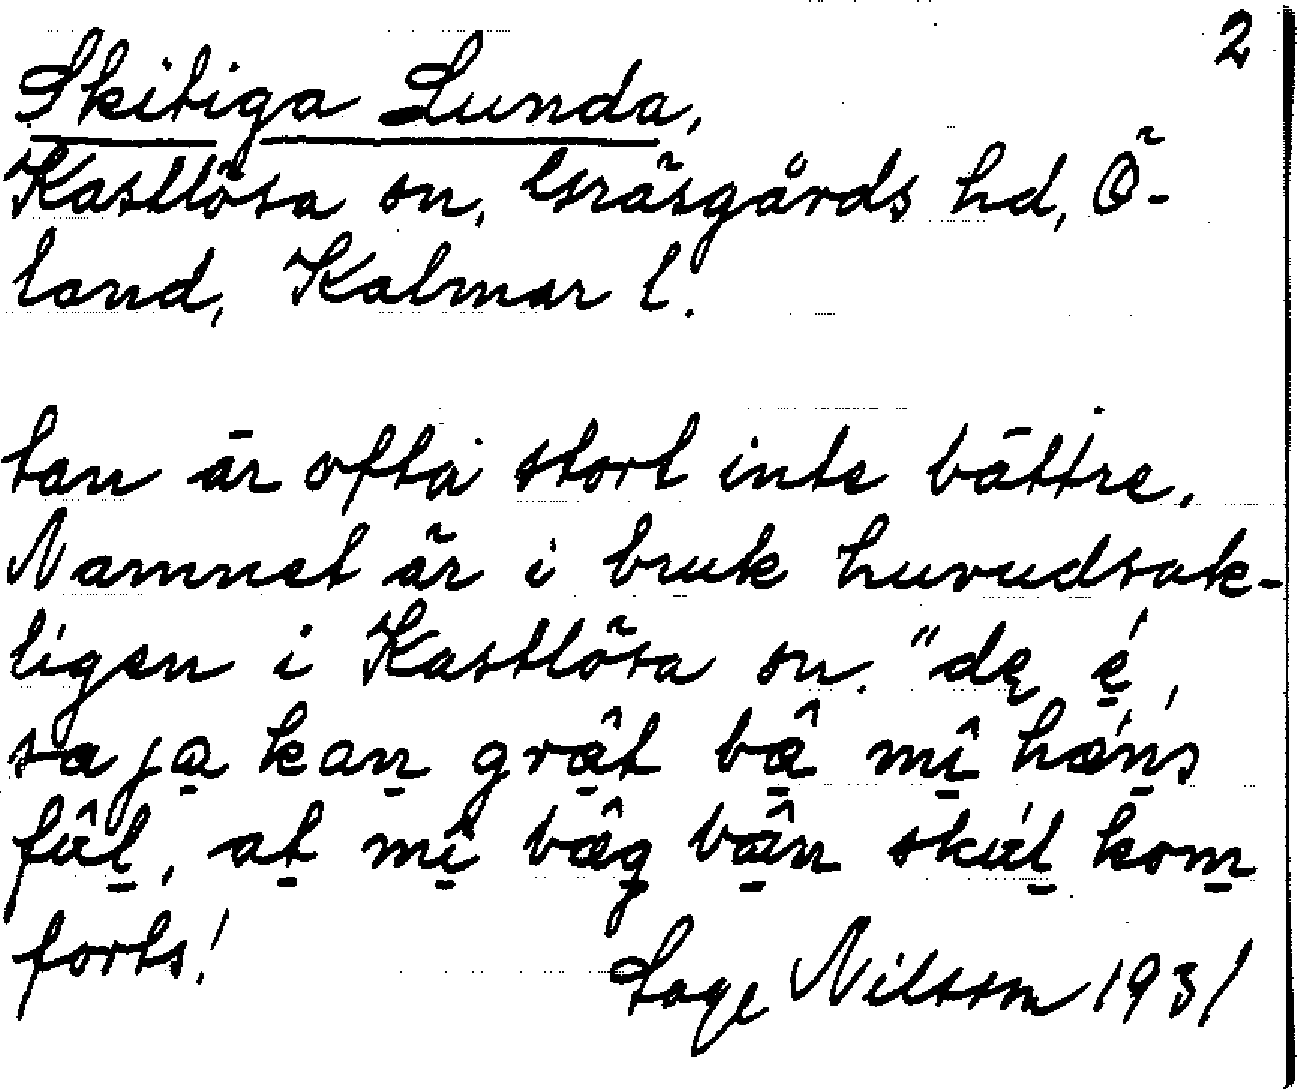 2
Skitiga Lunda,
Kastlösa sn, Gräsgårds hd, Ö-
land, Kalmar l.
tan är ofta stort inte bättre.
Namnet är i bruk huvudsak-
ligen i Kastlösa sn. "dę ę́,
sa ja kan grât bâ mî hǽns
fûl, at mî bâg bân skúl kom
forts!
Sage Nilsson 1931